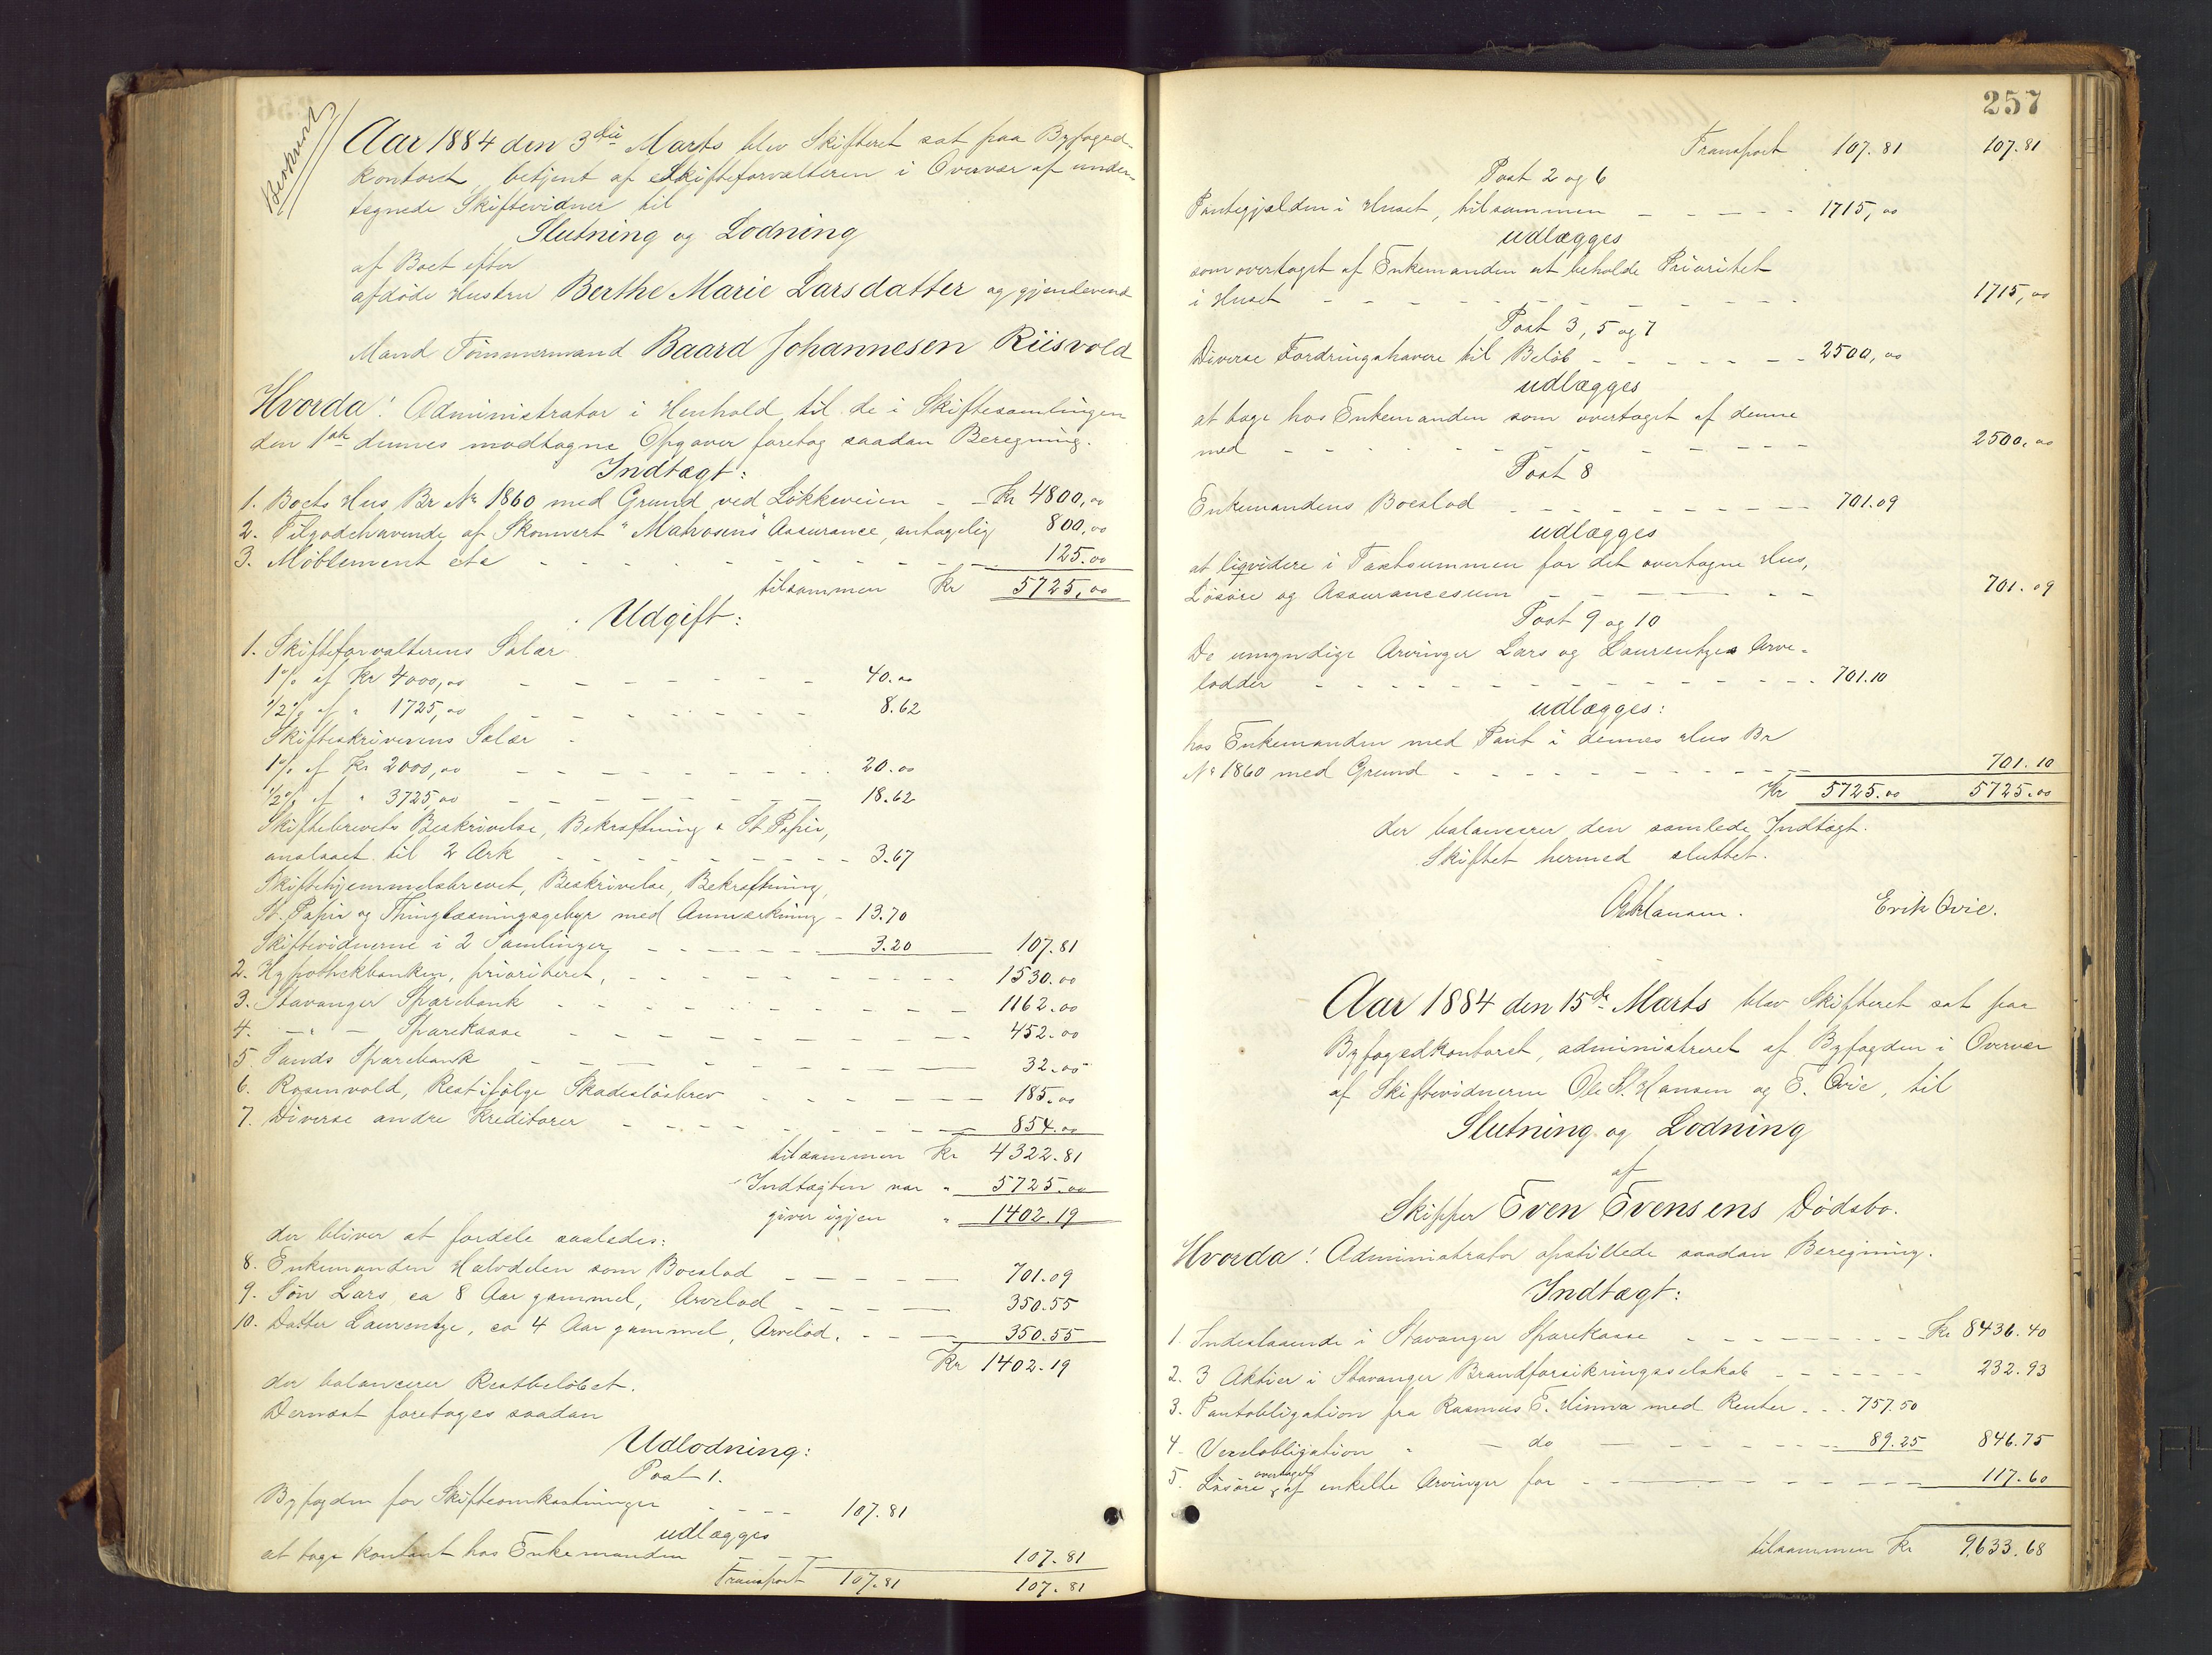 Beskrevet
Aar 1884 den 3die Marts blev Skifteret sat paa Byfoged-
kontoret, betjent af Skifteforvalteren i Overvær af under-
tegnede Skiftevidner til
Slutning og Lodning
af Boet efter
afdøde Hustru Berthe Marie Larsdatter og gjenlevende
Mand Tømmermand Baard Johannesen Riisvold
Hvorda! Administrator i Henhold til de i Skiftesamlingen
den 1ste dennes modtagne Opgaver foretog saadan Beregning.
Indtægt:
1. Boets Hus Br No 1860 med Grund ved Løkkeveien - - Kr 4800,00
2. Tilgodehavende af Skonnert "Matrosens" Assurance, antagelig 800,00
3. Møblement etc - - - - - - - 125.00
tilsammen Kr 5725,00
Udgift:
1. Skifteforvalterens Salær
1% af Kr 4000,00 - - - - - - 40.00
1/2% af " 1725,00 - - - - - - 8.62
Skifteskriverens Salær
1% af Kr 2000,00 - - - - - - 20.00
1/2% af " 3725,00 - - - - - - 18.62
Skiftebrevets Beskrivelse, Bekræftning & St. Papir,
anslaaet til 2 Ark - - - - - - 3.67
Skiftehjemmelsbrevet, Beskrivelse, Bekræftning,
St. Papir og Thinglæsningsgebyr med Anmærkning - 13.70
Skiftevidnerne i 2 Samlinger - - - - 3.20 107.81
2. Hypothekbanken, prioriteret, - - - - - - 1530.00
3. Stavanger Sparebank - - - - - - 1162.00
4. — " — Sparekasse - - - - - - 452.00
5. Sands Sparebank - - - - - - 32.00
6. Rosenvold, Rest ifølge Skadesløsbrev - - - - - 185.00
7. Diverse andre Kreditorer - - - - - - 854.00
tilsammen Kr 4322.81
Indtægten var " 5725.00
giver igjen " 1402.19
der bliver at fordele saaledes:
8. Enkemanden Halvdelen som Boeslod - - - - 701.09
9. Søn Lars, ca 8 Aar gammel, Arvelod - - - - 350.55
10. Datter Laurentze, ca 4 Aar gammel, Arvelod. - - - 350.55
Kr 1402.19
der balancerer Restbeløbet.
Dernæst foretoges saadan
Udlodning:
Post 1.
Byfogden for Skifteomkostninger - - - 107.81
udlægges
at tage kontant hos Enkemanden - - - 107.81
Transport 107.81 107.81
257
Transport 107.81 107.81
Post 2 og 6
Pantegjælden i Huset, tilsammen - - - - - 1715,00
udlægges
som overtaget af Enkemanden at beholde Prioritet
i Huset - - - - - - - - - 1715,00
Post 3, 5 og 7
Diverse Fordringshavere til Beløb - - - - - - 2500,00
udlægges
at tage hos Enkemanden som overtaget af denne
med - - - - - - - - - 2500,00
Post 8
Enkemandens Boeslod - - - - - - - - 701.09
udlægges
at liqvidere i Taxtsummen for det overtagne Hus,
Løsøre og Assurancesum - - - - - - 701.09
Post 9 og 10
De umyndige Arvinger Lars og Laurentzes Arve-
lodder - - - - - - - - - 701.10
udlægges:
hos Enkemanden med Pant i dennes Hus Br
No 1860 med Grund - - - - - - - 701.10
Kr 5725.00 5725.00
der balancerer den samlede Indtægt.
Skiftet hermed sluttet.
Erik Qvie.
Aar 1884 den 15de Marts blev Skifteret sat paa
Byfogedkontoret, administreret af Byfogden i Overvær
af Skiftevidnerne Ole St. Hansen og E. Qvie, til
Slutning og Lodning
af
Skipper Even Evensens Dødsbo.
Hvorda! Administrator opstillede saadan Beregning.
Indtægt:
1. Indestaaende i Stavanger Sparekasse - - - - - - Kr 8436.40
2. 3 Aktier i Stavanger Brandforsikringsselskab - - - - - 232.93
3. Pantobligation fra Rasmus E. Hinna med Renter - - - 757.50
4. Vexelobligation " — do — - - - - - 89.25 846.75
5. Løsøre overtaget af enkelte Arvinger for - - - - - - 117.60
tilsammen Kr 9,633.68